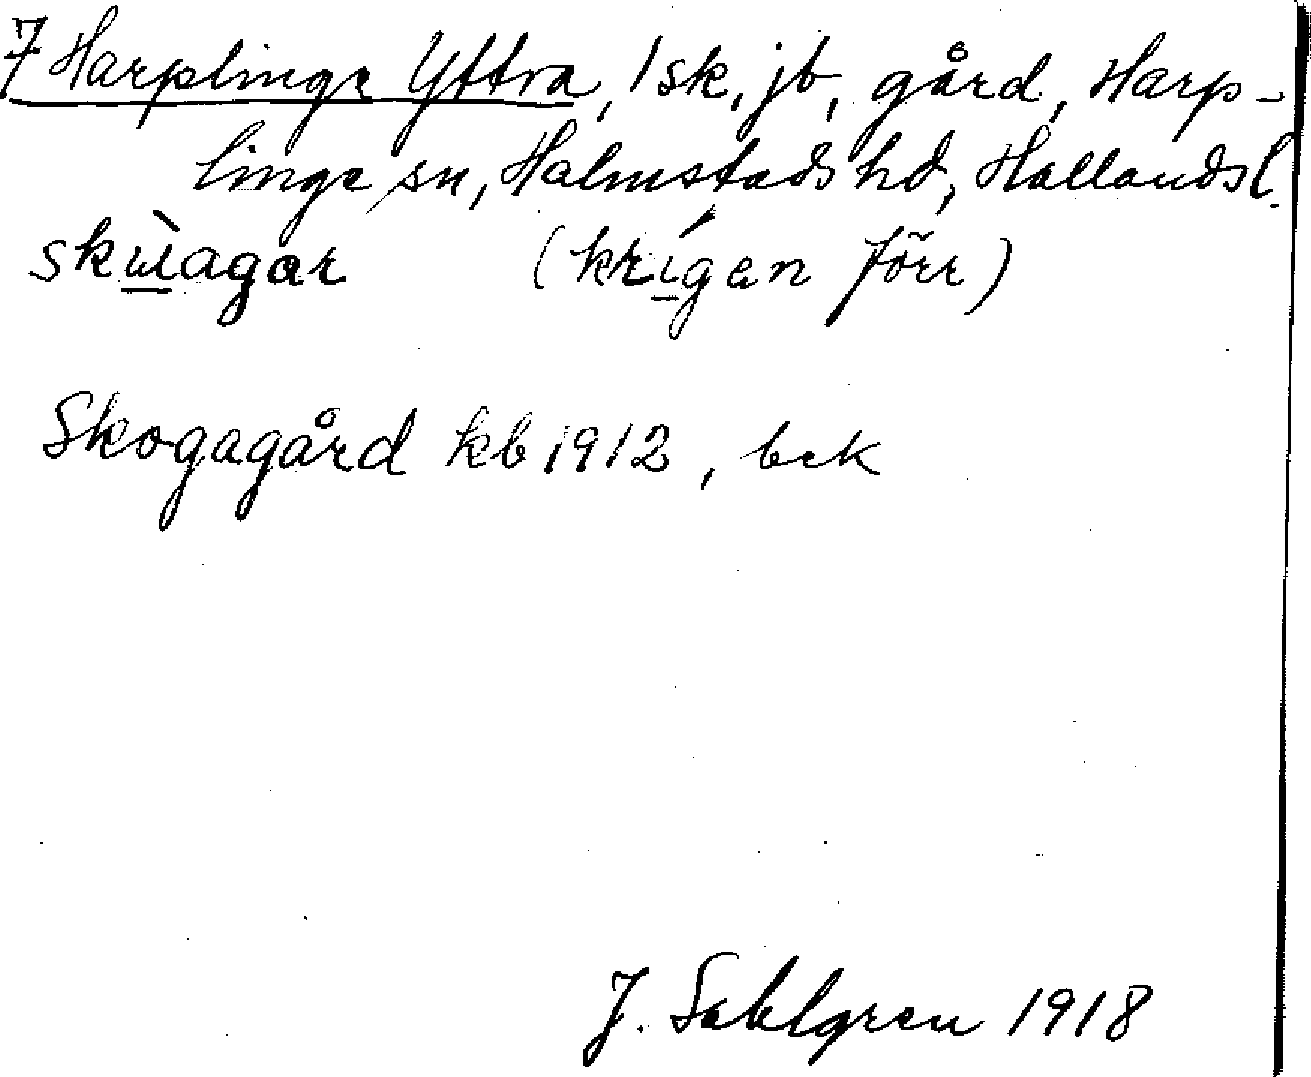 7 Harplinge Yttra, 1 sk, jb, gård, Harp-
linge sn, Halmstads hd, Hallands l.
skɯ̀agar (krígen förr)
Skogagård kb 1912, bek
J. Sahlgren 1918